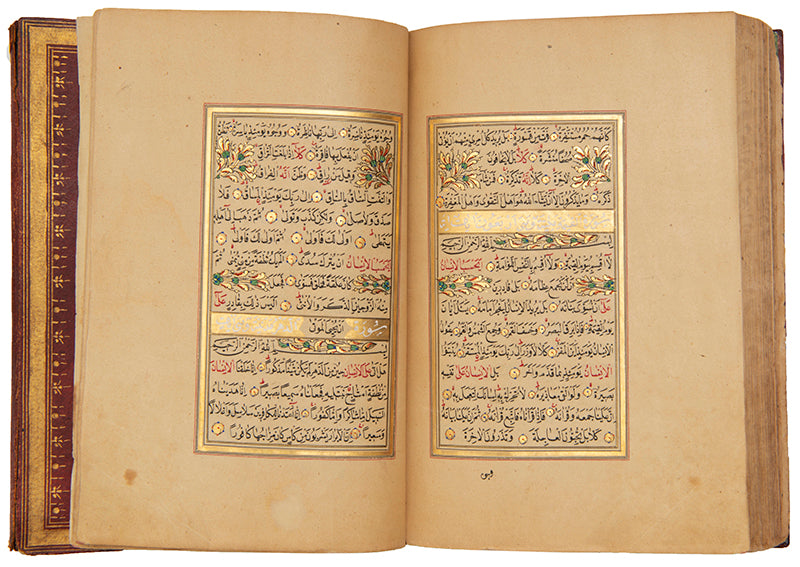 كانهم حمر مستنفرة فرت من قسورة بل يريد كل امرئ منهم ان يؤتى
صحفا منشرة كلا بل لا يخافون
الاخرة كلا انه تذكرة فمن شاء
ذكره وما يذكرون الا ان يشاء الله هو اهل التقوى واهل المغفرة
بسم الله الرحمن الرحيم
لا اقسم بيوم القيمة ولا اقسم بالنفس اللوامة ايحسب الانسان
الن نجمع عظامه بلى قادرين
على ان نسوى بنانه بل يريد الانسان ليفجر امامه يسئل ايان
يوم القيمة فاذا برق البصر وخسف القمر وجمع الشمس والقمر يقول
الانسان يومئذ اين المفر كلا لا وزر الى ربك يومئذ المستقر ينبؤا
الانسان يومئذ بما قدم واخر بل الانسان على نفسه
بصيرة ولو القى معاذيره لا تحرك به لسانك لتعجل به
ان علينا جمعه وقرانه فاذا قراناه فاتبع قرانه ثم ان علينا بيانه
كلا بل تحبون العاجلة وتذرون الاخرة
وجوه
وجوه يومئذ ناضرة الى ربها ناظرة ووجوه يومئذ باسرة تظن
ان يفعل بها فاقرة كلا اذا بلغت التراقى
وقيل من راق وظن انه الفراق
والتفت الساق بالساق الى ربك يومئذ المساق فلا
صدق ولا صلى ولكن كذب وتولى ثم ذهب الى اهله
يتمطى اولى لك فاولى ثم اولى لك فاولى
ايحسب الانسان ان يترك سدى الم يك نطفة من منى يمنى ثم
كان علقة فخلق فسوى فجعل
منه الزوجين الذكر والانثى اليس ذلك بقادر على
ان يحيى الموتى
بسم الله الرحمن الرحيم
هل اتى على الانسان حين من الدهر لم يكن شيئا مذكورا انا خلقنا الانسان
من نطفة امشاج نبتليه فجعلناه سميعا بصيرا انا هديناه
السبيل اما شاكرا واما كفورا انا اعتدنا للكافرين سلاسل واغلالا
وسعيرا ان الابرار يشربون من كاس كان مزاجها كافورا